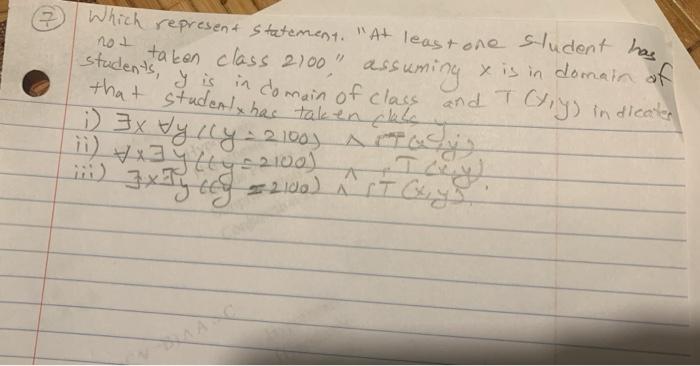 7) Which represent statement. "At least one student has
not taken class 2100" assuming x is in domain of
students, y is in domain of class and T (x,y) indicates
that student x has taken class y
i) ∃x ∀y ((y = 2100) ∧ ¬T(x,y))
ii) ∀x ∃y ((y = 2100) ∧ ¬T(x,y))
iii) ∃x ∃y ((y = 2100) ∧ ¬T(x,y))